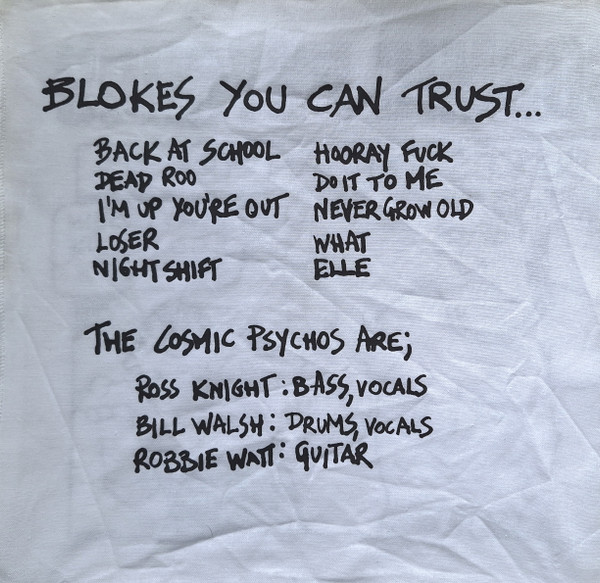 BLOKES YOU CAN TRUST...
BACK AT SCHOOL
DEAD ROO
I'M UP YOU'RE OUT
LOSER
NIGHT SHIFT
HOORAY FUCK
DO IT TO ME
NEVER GROW OLD
WHAT
ELLE
THE COSMIC PSYCHOS ARE;
ROSS KNIGHT: BASS, VOCALS
BILL WALSH: DRUMS, VOCALS
ROBBIE WATT: GUITAR